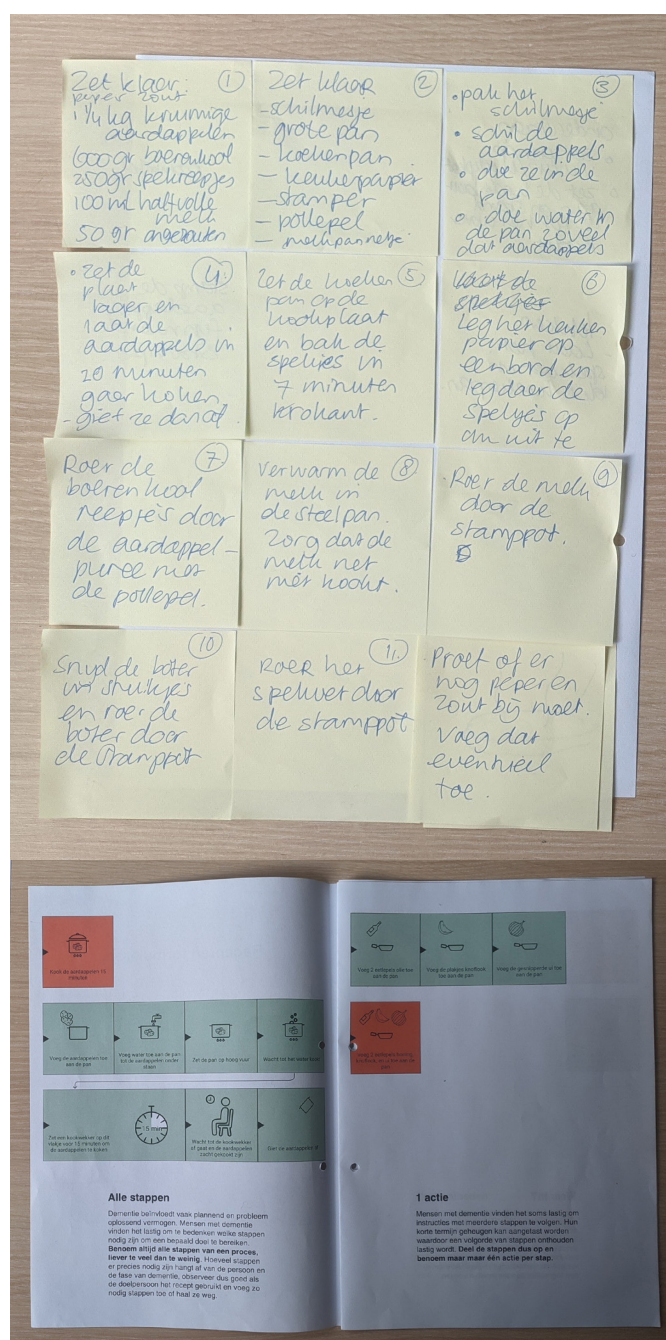 Zet klaar: 1
peper zout
1 1/4 kg kruimige
aardappelen
600gr boerenkool
250gr spekreepjes
100 ml halfvolle
melk
50 gr ongezouten
Zet klaar 2
- schilmesje
- grote pan
- koekenpan
- keukenpapier
- stamper
- pollepel
- melkpannetje
3
• pak het
schilmesje
• schil de
aardappels
• doe ze in de
pan
• doe water in
de pan zoveel
dat aardappels
4.
• zet de
plaat
lager en
laat de
aardappels in
20 minuten
gaar koken.
- giet ze dan af.
5
Zet de koeken
pan op de
kookplaat
en bak de
spekjes in
7 minuten
krokant.
6
spekjes
leg het keuken
papier op
een bord en
leg daar de
spekjes op
om uit te
7
Roer de
boerenkool
reepjes door
de aardappel-
puree met
de pollepel.
8
verwarm de
melk in
de steelpan.
Zorg dat de
melk net
niet kookt.
9
Roer de melk
door de
stamppot.
10
Snijd de boter
in stukjes
en roer de
boter door
de stamppot
11
Roer het
spekvet door
de stamppot
Proef of er
nog peper en
zout bij moet.
Voeg dat
eventueel
toe.
Kook de aardappelen 15
minuten
Voeg de aardappelen toe
aan de pan
Voeg water toe aan de pan
tot de aardappelen onder
staan
Zet de pan op hoog vuur
Wacht tot het water kookt
Zet een kookwekker op dit
vlakje voor 15 minuten om
de aardappelen te koken.
15 min
Wacht tot de kookwekker
af gaat en de aardappelen
zacht gekookt zijn
Giet de aardappelen af
Alle stappen
Dementie beïnvloedt vaak plannend en probleem
oplossend vermogen. Mensen met dementie
vinden het lastig om te bedenken welke stappen
nodig zijn om een bepaald doel te bereiken.
Benoem altijd alle stappen van een proces,
liever te veel dan te weinig. Hoeveel stappen
er precies nodig zijn hangt af van de persoon en
de fase van dementie, observeer dus goed als
de doelpersoon het recept gebruikt en voeg zo
nodig stappen toe of haal ze weg.
Voeg 2 eetlepels olie toe
aan de pan
Voeg de plakjes knoflook
toe aan de pan
Voeg de gesnipperde ui toe
aan de pan
1 actie
Mensen met dementie vinden het soms lastig om
instructies met meerdere stappen te volgen. Hun
korte termijn geheugen kan aangetast worden
waardoor een volgorde van stappen onthouden
lastig wordt. Deel de stappen dus op en
benoem maar maar één actie per stap.